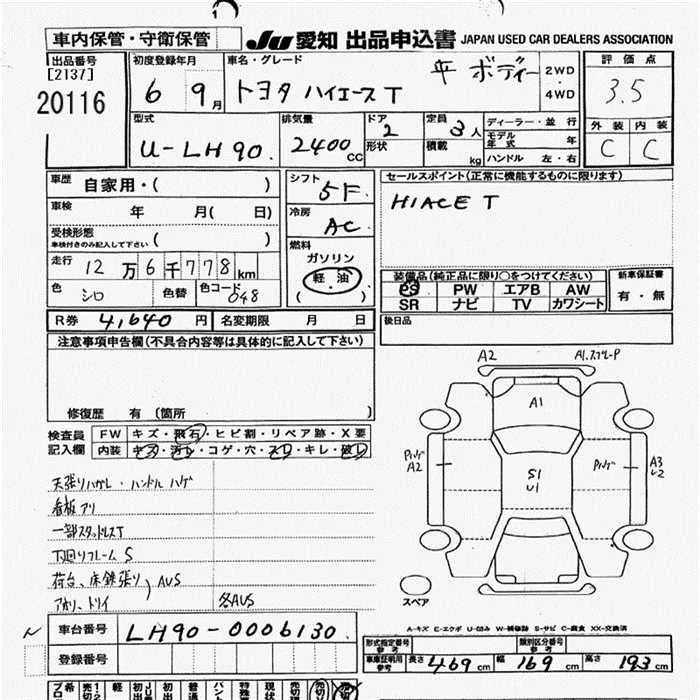 車内保管・守衛保管
JU 愛知 出品申込書 JAPAN USED CAR DEALERS ASSOCIATION
出品番号
[2137]
20116
初度登録年月
6 9月
車名・グレード
平 ボディー
トヨタ ハイエースT
2WD
・
4WD
評価点
3.5
外装 内装
C C
型式
U-LH90.
排気量
2400 cc
ドア
2
形状
定員
3人
積載 kg
ディーラー・並行
モデル年式 年
ハンドル 左・右
車歴 自家用・( )
車検 年 月( 日)
受検形態
車検付きのみ記入して下さい ( )
走行 12万6千778km
色 シロ 色替 色コード 048
シフト
5F.
冷房
AC
燃料
ガソリン
軽油
( )
セールスポイント(正常に機能するものに限ります)
HIACE T
装備品(純正品に限り○をつけてください)
PS PW エアB AW
SR ナビ TV カワシート
新車保証書
有・無
R券 4,640円 名変期限 月 日
後日品
注意事項申告欄(不具合内容等は具体的に記入して下さい)
修復歴 有 (箇所 )
検査員
記入欄
FW キズ・飛石・ヒビ割・リペア跡・X要
内装 キズ・汚レ・コゲ・穴・スレ・キレ・破レ
天張りハガレ・ハンドルハゲ
看板アリ
一部スタッドレスT
下回りフレームS
荷台、床鉄張り AUS
アオリ、トリイ
各AUS
A2
A1.スプレーP
A1
A2
S1
U1
A3
U2
スペア
A-キズ E-エクボ U-凹み W-補修跡 S-サビ C-腐食 XX-交換済
車台番号 LH90-0006130.
登録番号
形式指定番号
参考
類別区分番号
参考
車庫証明用
参考
長さ 469 cm 幅 169 cm 高さ 193 cm